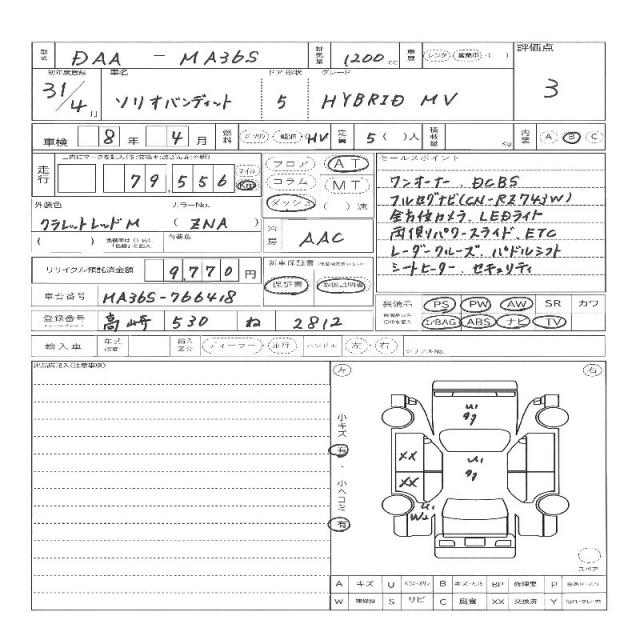 型式 DAA - MA36S 排気量 1200 cc 車歴 レンタ 営業車 ( ) 評価点
初年度登録 車名 ドア形状 グレード 3
31/4月 ソリオバンディット 5 HYBRID MV
車検 8年 4月 燃料 ガソリン 軽油 HV 定員 5( )人 積載量 Kg 内装 A B C
走行 79,556 マイル Km フロア AT セールスポイント
コラム MT ワンオーナー、DCBS
外装色 カラーNo. ダッシュ ( )速 フルセグナビ(CN-RZ743W)
クラレットレッドM ( ZNA ) 全方位カメラ、LEDライト
( ) 内装色 冷房 AAC 両側パワースライド、ETC
レーダークルーズ、パドルシフト
リサイクル預託済金額 9,770円 新車保証書 シートヒーター、セキュリティ
保証書 取扱説明書
車台番号 MA36S-766418 装備品 PS PW AW SR カワ
登録番号 高崎 530 ね 2812 I/BAG ABS ナビ TV
輸入車 年式 輸入区分 ディーラー 並行 ハンドル 左・右 シリアルNo.
出品店記入(注意事項) 左 右
小キズ 有・小ヘコミ 有
U1
U1
XX
XX
U1
W2
スペア
A キズ U B キズ・ヘコミ BP 修理要 P
W 補修跡 S サビ C 腐食 XX 交換済 Y